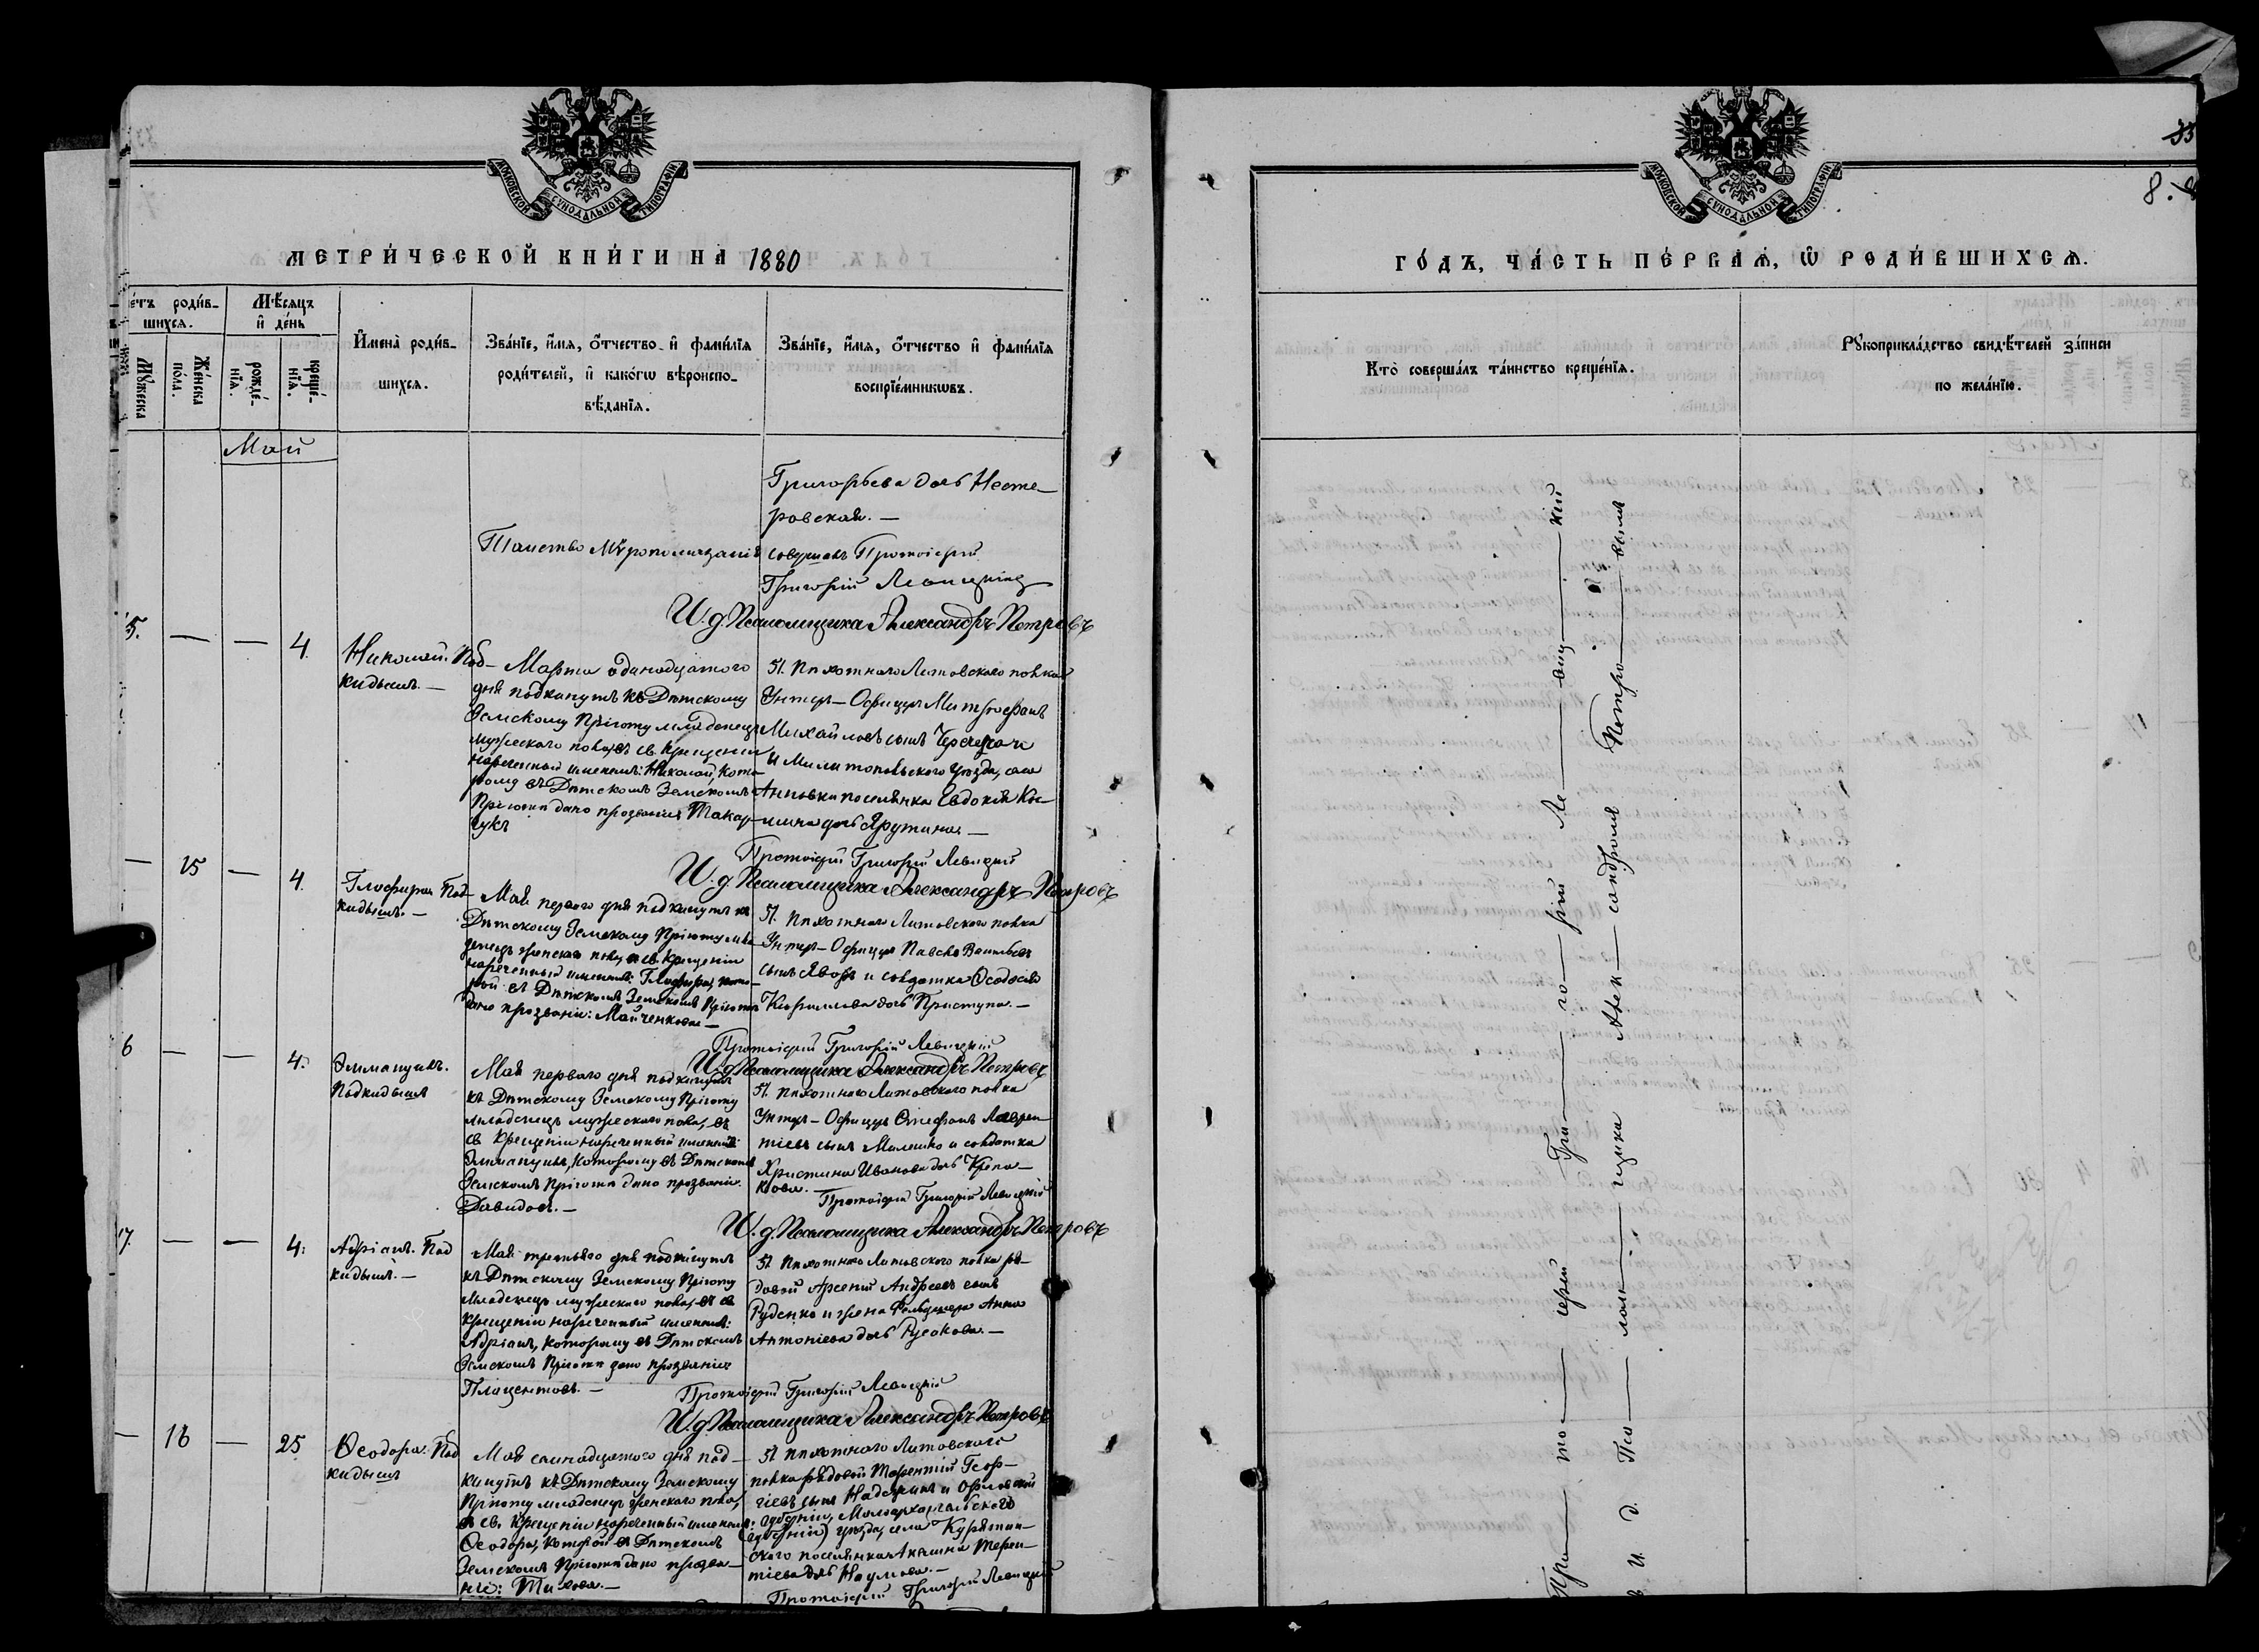 МОСКОВСКОЙ СѴНОДАЛЬНОЙ ТИПОГРАФІИ
МЕТРИ́ЧЕСКОЙ КНИ́ГИ НА 1880
е́тъ роди́в-
шихся.
Мꙋ́жеска
Же́нска
по́ла.
Мѣ́сяцъ
и҆ де́нь
рожде́-
нїѧ.
креще́-
нїѧ.
И҆мена̀ роди́в-
шихся.
Зва́нїе, и҆́мя, ѻ҆́тчество и҆ фами́лїя
роди́телей, и҆ како́гѡ вѣроиспо-
вѣ́данїя.
Зва́нїе, и҆́мя, ѻ҆́тчество и҆ фами́лїя
воспрїе́мникѡвъ.
Май
Григорьева дочь Несте-
ровская. —
Таинство Мѵропомазанія совершалъ Протоіерей
Григорій Левицкій
И. д. Псаломщика Александръ Петровъ
5. — — 4.
Николай. Под-
кидышъ. —
Марта одинадцатого
дня подкинутъ къ Дѣтскому
Земскому Пріюту младенецъ
мужескаго пола, въ св. Крещеніи
нареченный именемъ: Николай, кото-
рому въ Дѣтскомъ Земскомъ
Пріютѣ дано прозваніе
51. Пѣхотнаго Литовскаго полка
Унтеръ-Офицеръ Митрофанъ
Михайловъ сынъ
и Мелитопольского Уѣзда, села
Анновки поселянка Евдокія
дочь Ярутина. —
Протоіерей Григорій Левицкій
И. д. Псаломщика Александръ Петровъ
— 15 — 4.
Глафира. Под-
кидышъ. —
Мая перваго дня подкинутъ къ
Дѣтскому Земскому Пріюту мла-
денецъ женскаго пола, въ св. Крещеніи
нареченный именемъ: Глафира, кото-
рой въ Дѣтскомъ Земскомъ Пріютѣ
дано прозваніе: Майченкова —
51. Пѣхотнаго Литовскаго полка
Унтеръ-Офицеръ Павелъ Васильевъ
сынъ Яворъ и солдатка Ѳеодосія
Кириллова дочь Приступа. —
Протоіерей Григорій Левицкій
И. д. Псаломщика Александръ Петровъ
6 — — 4.
Эммануилъ.
Подкидышъ
Мая перваго дня подкинутъ
къ Дѣтскому Земскому Пріюту
младенецъ мужескаго пола, въ
св. Крещеніи нареченный именемъ:
Эммануилъ, которому въ Дѣтскомъ
Земскомъ Пріютѣ дано прозваніе
Давидовъ. —
51. Пѣхотнаго Литовскаго полка
Унтеръ-Офицеръ Стефанъ Лаврен-
тіевъ сынъ Малешко и солдатка
Христина Иванова дочь
Протоіерей Григорій Левицкій
И. д. Псаломщика Александръ Петровъ
7. — — 4.
Адріанъ. Под
кидышъ. —
Мая третьяго дня подкинутъ
къ Дѣтскому Земскому Пріюту
младенецъ мужескаго пола, въ св
Крещеніи нареченный именемъ:
Адріанъ, которому въ Дѣтскомъ
Земскомъ Пріютѣ дано прозваніе
Плацентовъ. —
51 Пѣхотнаго Литовскаго полка ря-
довой Арсеній Андреевъ сынъ
Руденко и жена Фельдшера Анна
Антоніева дочь Русакова. —
Протоіерей Григорій Левицкій
И. д. Псаломщика Александръ Петровъ
— 16 — 25
Ѳеодора. Под
кидышъ
Мая семнадцатого дня под-
кинутъ къ Дѣтскому Земскому
Пріюту младенецъ женскаго пола,
въ св. Крещеніи нареченный именемъ:
Ѳеодора, которой въ Дѣтскомъ
Земскомъ Пріютѣ дано прозва-
ніе: Тихова. —
51 Пѣхотнаго Литовскаго
полка рядовой Терентій Геор-
гіевъ сынъ и Орловской
губерніи, Малоархангельского
(губерніи) уѣзда, села
поселянка Акилина Терен-
тіева дочь Наумова. —
Протоіерей Григорій Левицкій
МОСКОВСКОЙ СѴНОДАЛЬНОЙ ТИПОГРАФІИ
35
8.
ГО́ДЪ, ЧА́СТЬ ПЕ́РВАѦ, Ѡ҆ РОДИ́ВШИХСѦ.
Кто̀ соверша́лъ та́инство креще́нїя.
Рꙋкоприкла́дство свидѣ́телей за́писи
по жела́нїю.
Про — то — іерей Гри — го — рій Ле — виц — кій
И. д. Пса — лом — щика Алек — сандръ Петро — въ